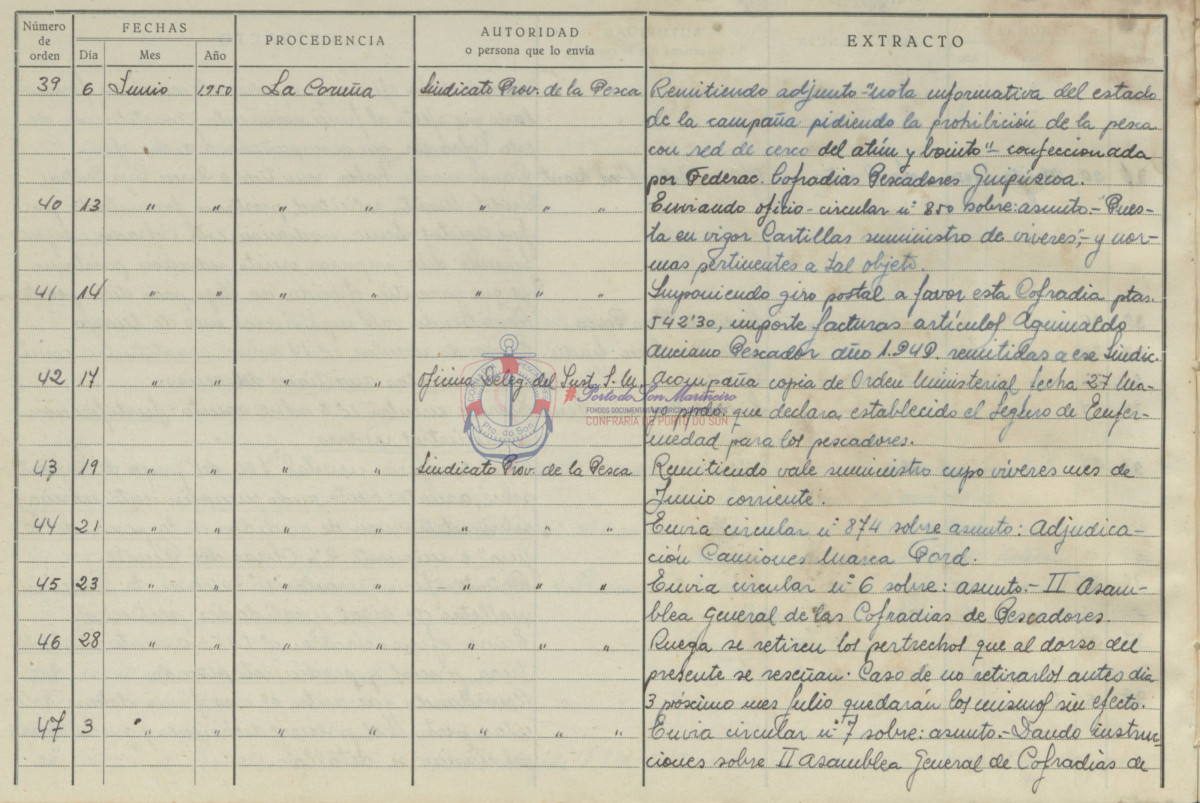 Número de orden
FECHAS
Día Mes Año
PROCEDENCIA
AUTORIDAD
o persona que lo envía
EXTRACTO
39 6 Junio 1950 La Coruña Sindicato Prov. de la Pesca Remitiendo adjunto "nota informativa del estado
de la campaña pidiendo la prohibición de la pesca
con red de cerco del atún y bonito" - confeccionada
por Federac. Cofradias Pescadores Guipúzcoa.
40 13 " " " " " " " Enviando oficio-circular nº 850 sobre: asunto.- Pues-
ta en vigor Cartillas suministro de viveres", - y nor-
mas pertinentes a tal objeto.
41 14 " " " " " " " Imponiendo giro postal a favor esta Cofradia ptas.
542'30, importe facturas artículos Aguinaldo
Anciano Pescador año 1.949 remitidas a ese Sindic.
42 17 " " " " Oficina Deleg. del Inst. S. M. Acompaña copia de Orden Ministerial fecha 27 Ma-
que declara establecido el Seguro de Enfer-
medad para los pescadores.
43 19 " " " " Sindicato Prov. de la Pesca Remitiendo vale suministro cupo víveres mes de
Junio corriente.
44 21 " " " " " " " Envia circular nº 874 sobre asunto: Adjudica-
ción Camiones Marca Ford.
45 23 " " " " " " " Envia circular nº 6 sobre: asunto.- II Asam-
blea General de las Cofradías de Pescadores.
46 28 " " " " " " " Ruega se retiren los pertrechos que al dorso del
presente se reseñan. Caso de no retirarlos antes dia
3 próximo mes Julio quedarán los mismos sin efecto.
47 3 " " " " " " " Envia circular nº 7 sobre: asunto.- Dando instruc-
ciones sobre II Asamblea General de Cofradías de
#PortodoSonMariñeiro
CONFRARÍA DE PORTO DO SON
Pto. do Son